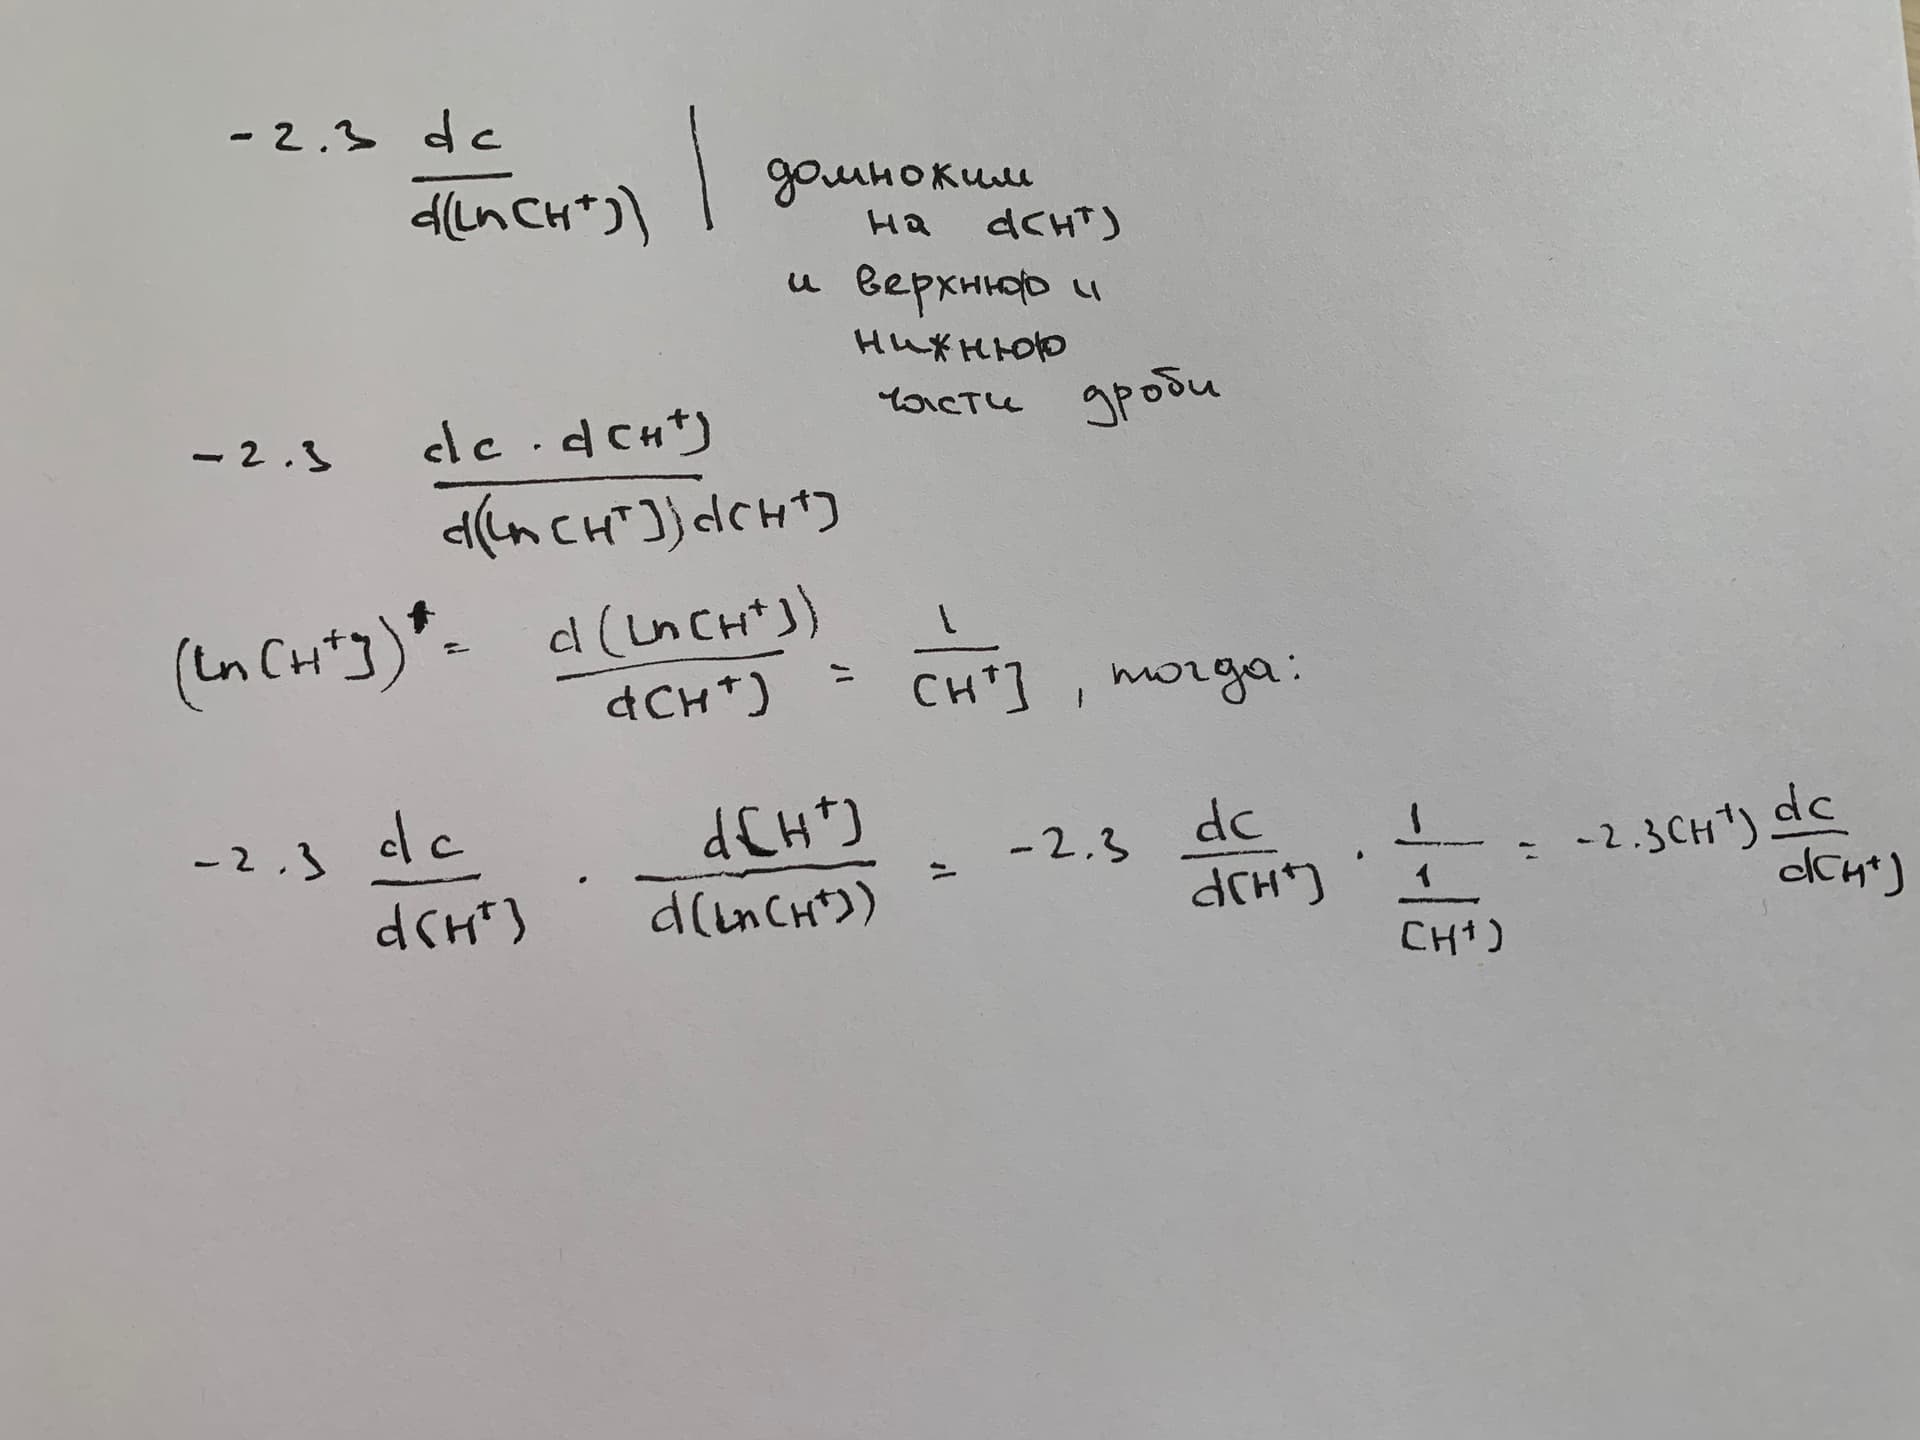 -2.3 dc / d(ln[H⁺]) | домножим
на d[H⁺]
и верхнюю и
нижнюю
части дроби
-2.3 dc · d[H⁺] / d(ln[H⁺])d[H⁺]
(ln[H⁺])' = d(ln[H⁺]) / d[H⁺] = 1 / [H⁺] , тогда:
-2.3 dc / d[H⁺] · d[H⁺] / d(ln[H⁺]) = -2.3 dc / d[H⁺] · 1 / (1 / [H⁺]) = -2.3[H⁺] dc / d[H⁺]